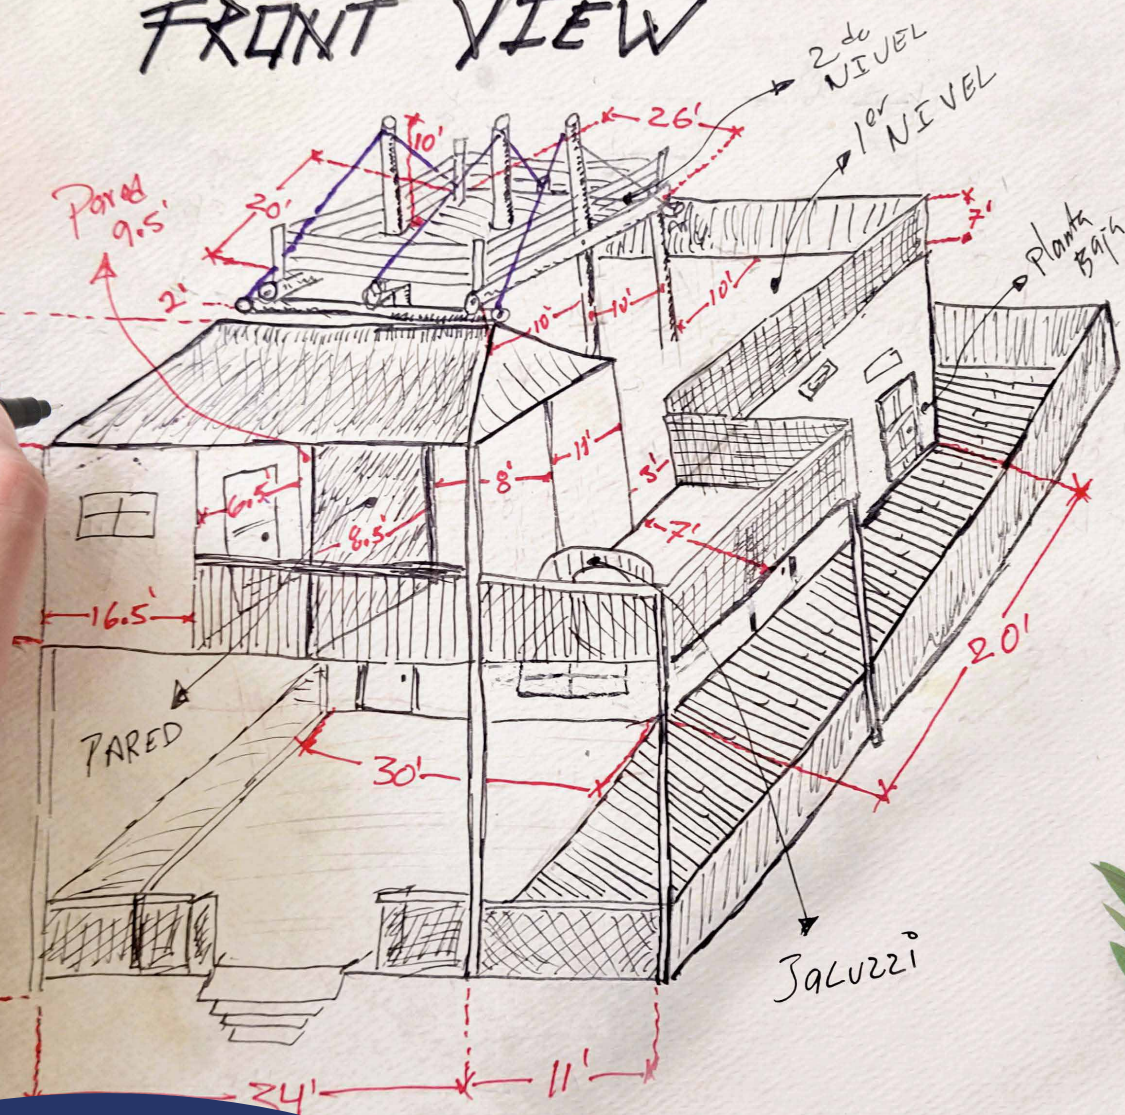 FRONT VIEW
2do
NIVEL
1er
NIVEL
26'
10'
Pared
9.5'
20'
7'
Planta
Baja
2'
10'
10'
10'
11'
8'
3'
6.5'
8.5'
7'
16.5'
20'
PARED
30'
Jacuzzi
24'
11'